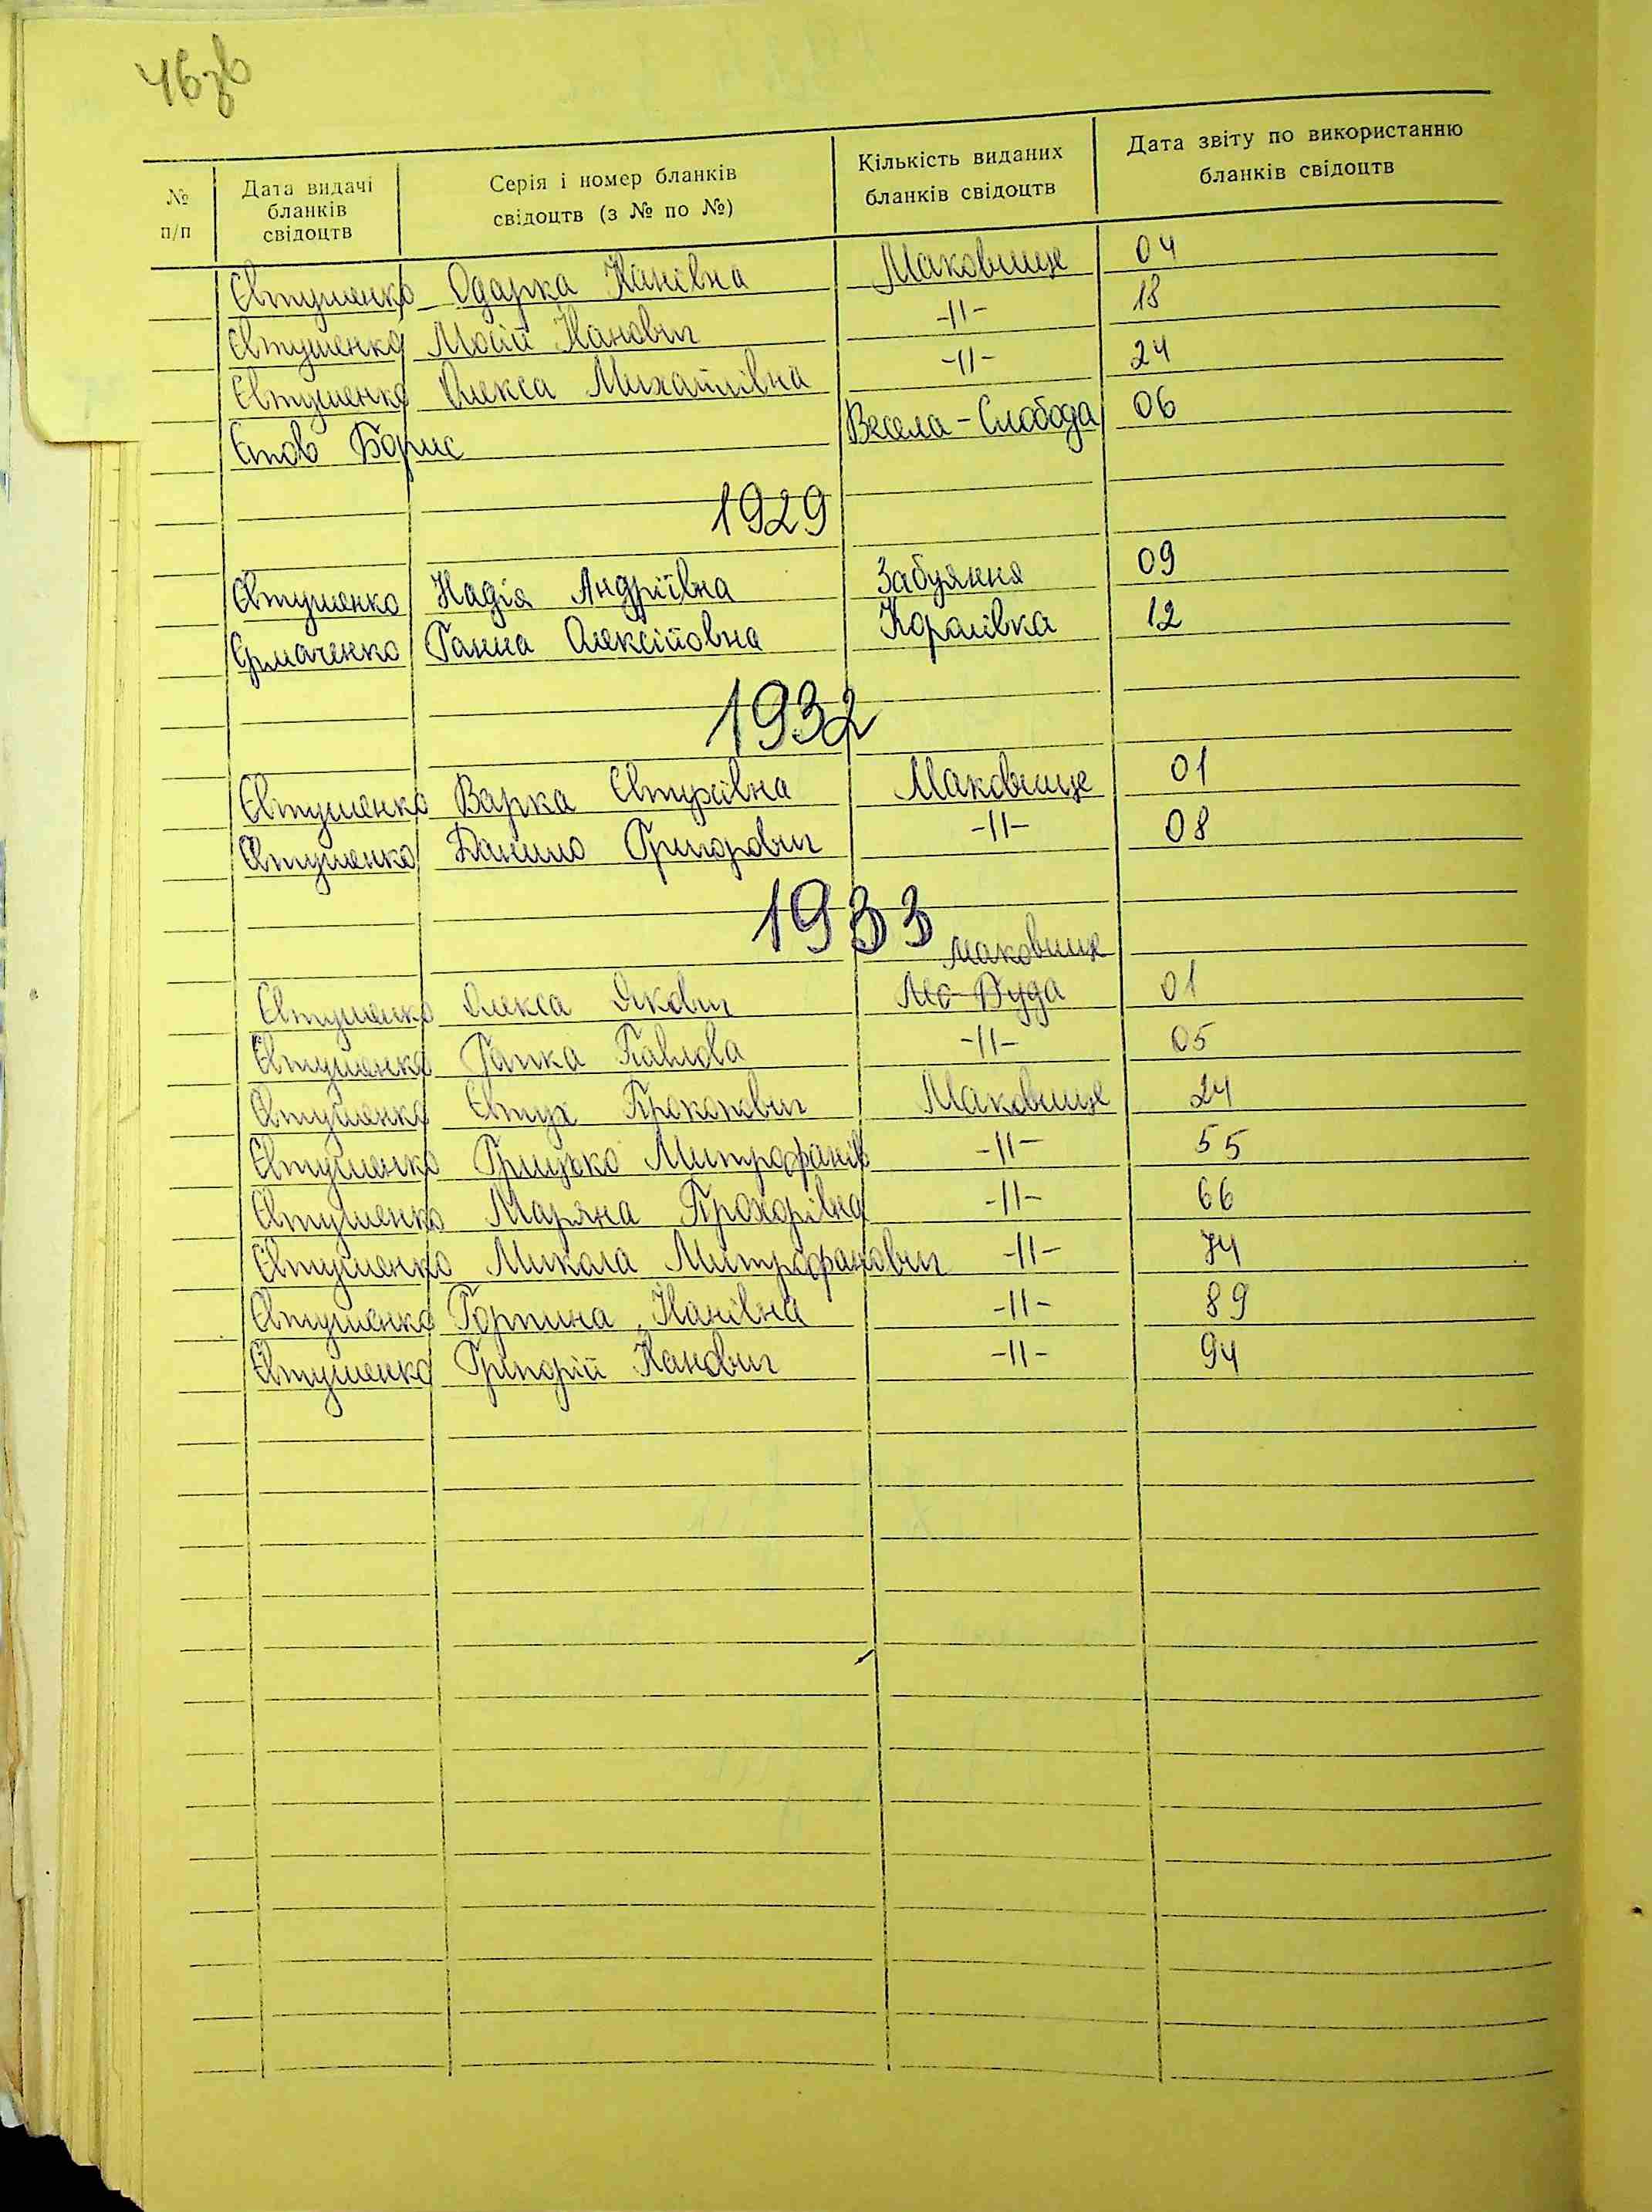 46зв
№ п/п Дата видачі бланків свідоцтв Серія і номер бланків свідоцтв (з № по №) Кількість виданих бланків свідоцтв Дата звіту по використанню бланків свідоцтв
Євтушенко Одарка Іванівна Маковище 04
Євтушенко Мойій Іванович -//- 18
Євтушенко Олекса Михайлівна -//- 24
Єпов Борис Весела-Слобода 06
1929
Євтушенко Надія Андріївна Забуяння 09
Єрмаченко Ганна Олексійовна Королівка 12
1932
Євтушенко Варка Євтухівна Маковище 01
Євтушенко Данило Григорович -//- 08
1933
Маковище
Євтушенко Олекса Якович Мо-Руда 01
Євтушенко Гапка Павлова -//- 05
Євтушенко Євтух Прокопович Маковище 24
Євтушенко Грицько Митрофанів -//- 55
Євтушенко Маряна Прохорівна -//- 66
Євтушенко Микола Митрофанович -//- 74
Євтушенко Горпина Іванівна -//- 89
Євтушенко Григорій Іванович -//- 94